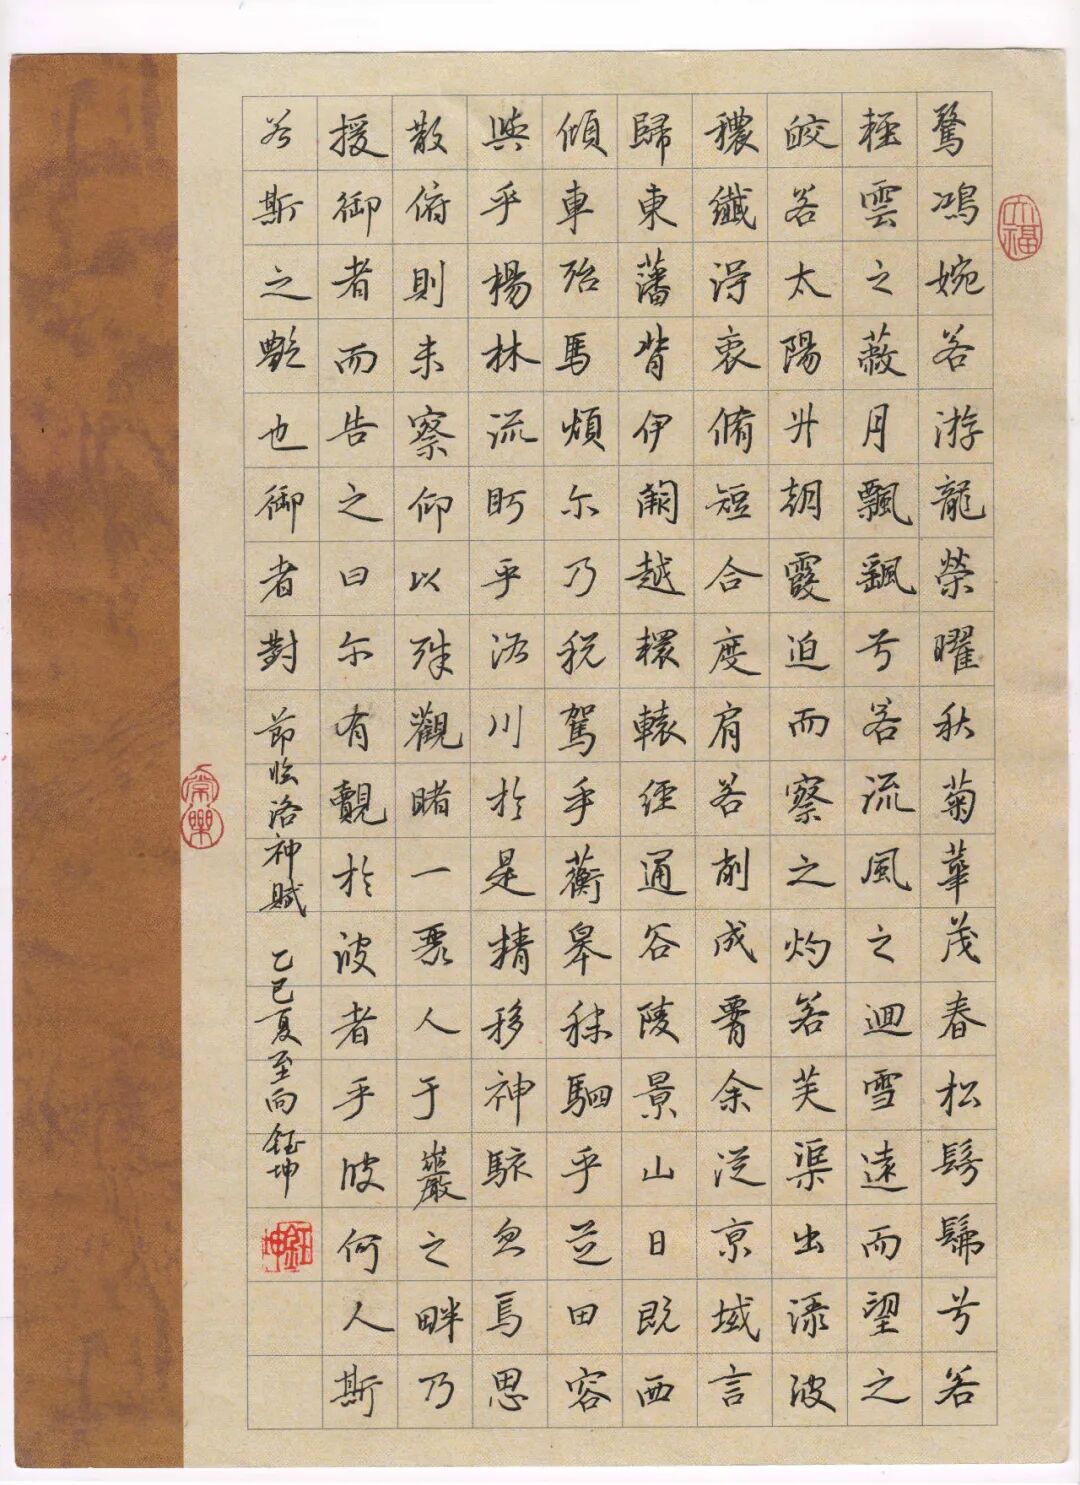 驚鴻婉若游龍榮曜秋菊華茂春松髣髴兮若
輕雲之蔽月飄颻兮若流風之迴雪遠而望之
皎若太陽升朝霞迫而察之灼若芙渠出淥波
穠纖淂衷脩短合度肩若削成余從京域言
歸東藩背伊闕越轘轅經通谷陵景山日既西
傾車殆馬煩尒乃稅駕乎蘅皋秣駟乎芝田容
與乎楊林流盻乎洛川於是精移神駭忽焉思
散俯則未察仰以殊觀睹一麗人于巖之畔乃
援御者而告之曰尒有覿於彼者乎彼何人斯
若斯之艷也御者對
節臨洛神賦 乙巳夏至向鈺坤
鈺坤
常樂